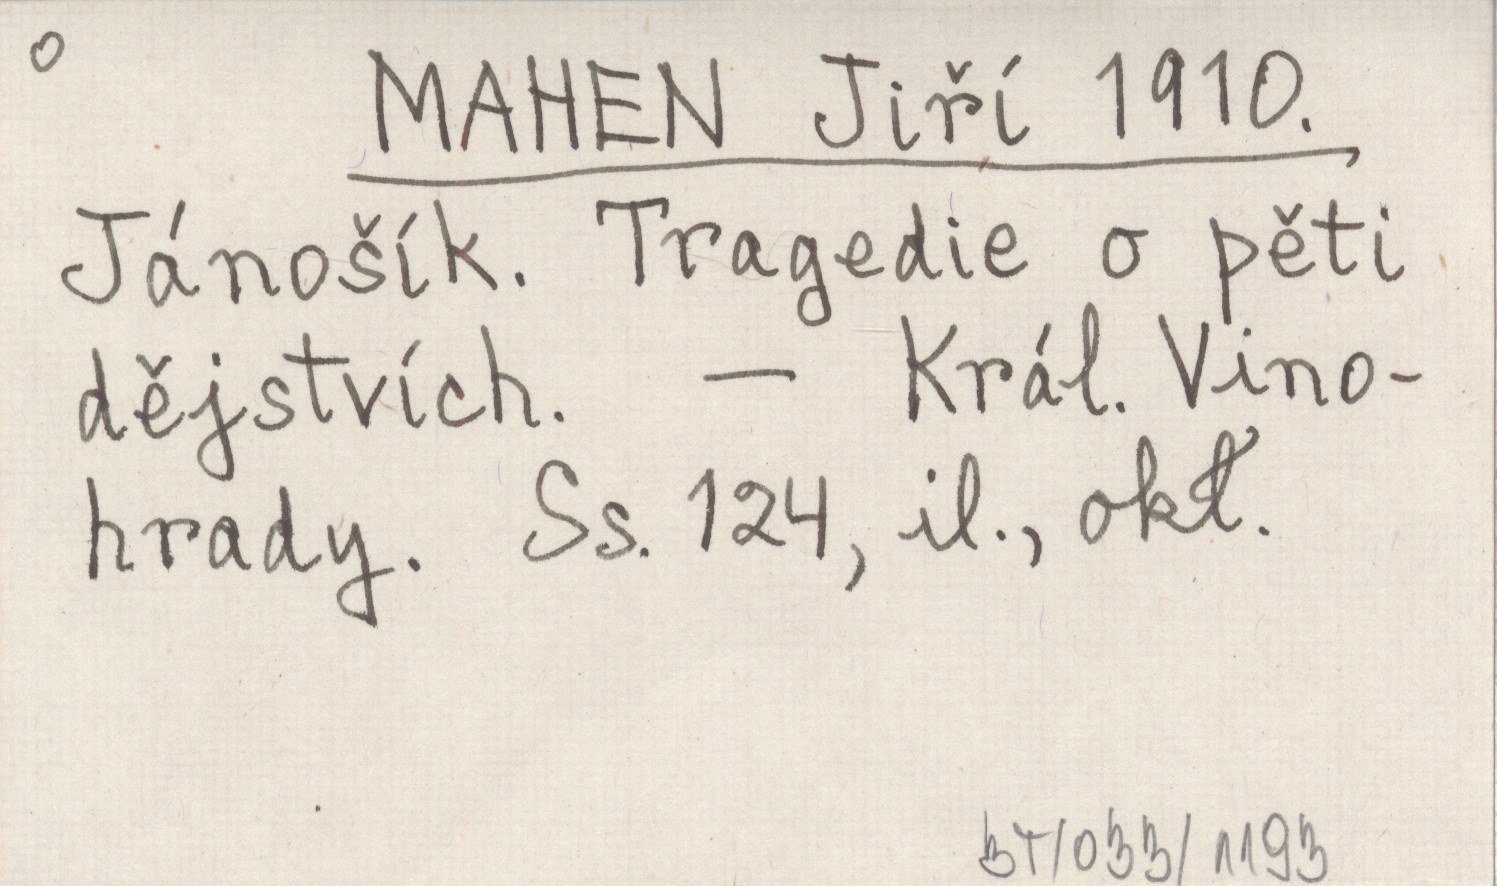 MAHEN Jiří 1910.
Jánošík. Tragedie o pěti
dějstvích. — Král. Vino-
hrady. Ss. 124, il., okt.
BT/033/1193